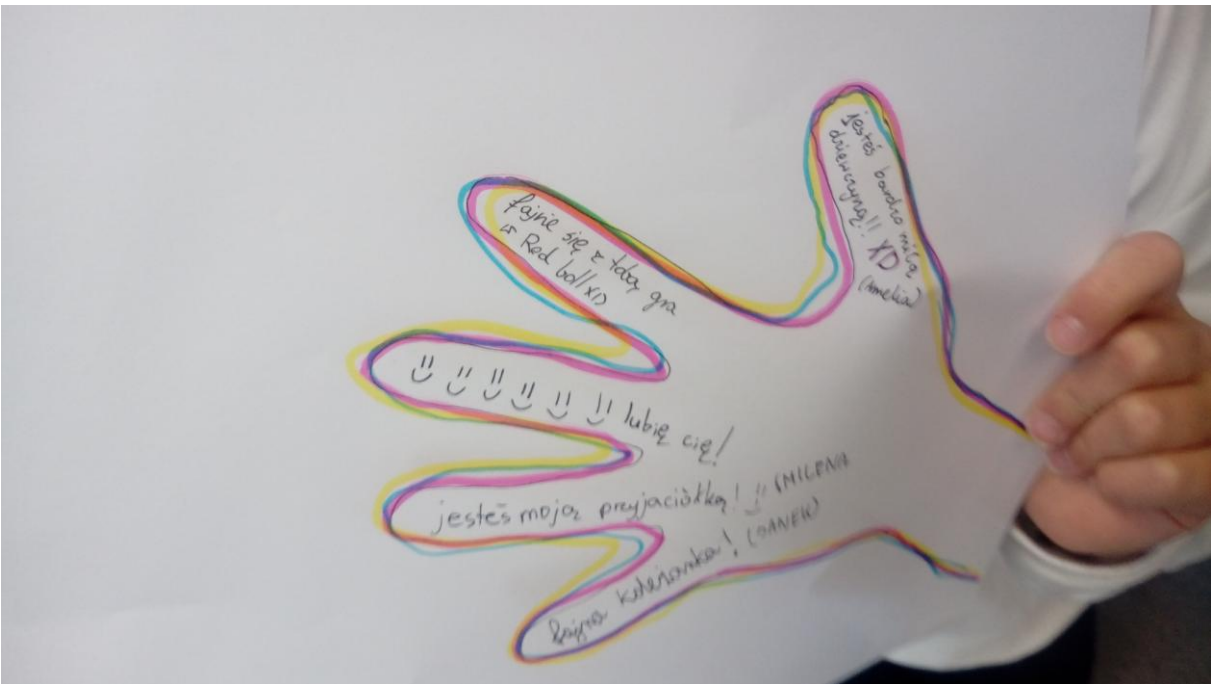 jesteś bardzo miłą
dziewczyną!! XD
(Amelia)
fajnie się z tobą gra
w Red ball XD
lubię cię!
jesteś moją przyjaciółką! (MILENA
fajna koleżanka!